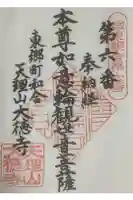 第六番
奉納経
本尊如意輪観世音菩薩
東郷町和合
天理山大徳寺